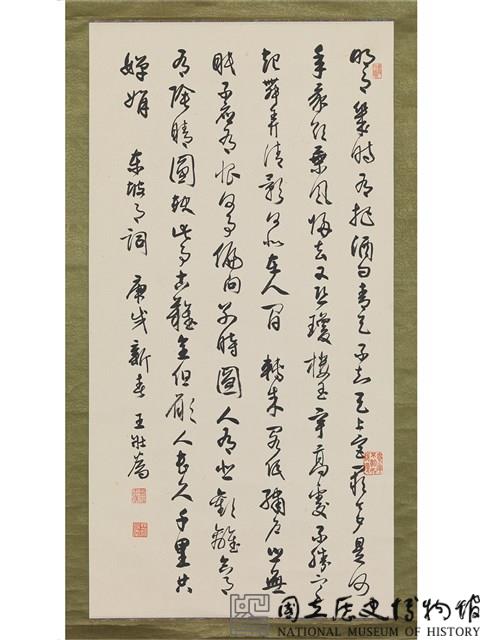 明月幾時有把酒問青天不知天上宮闕今夕是何
年我欲乘風歸去又恐瓊樓玉宇高處不勝寒
起舞弄清影何似在人間 轉朱閣低綺戶照無
眠不應有恨何事偏向別時圓人有悲歡離合月
有陰晴圓缺此事古難全但願人長久千里共
嬋娟 東坡月詞 庚戌新春 王壯為
國立歷史博物館
NATIONAL MUSEUM OF HISTORY